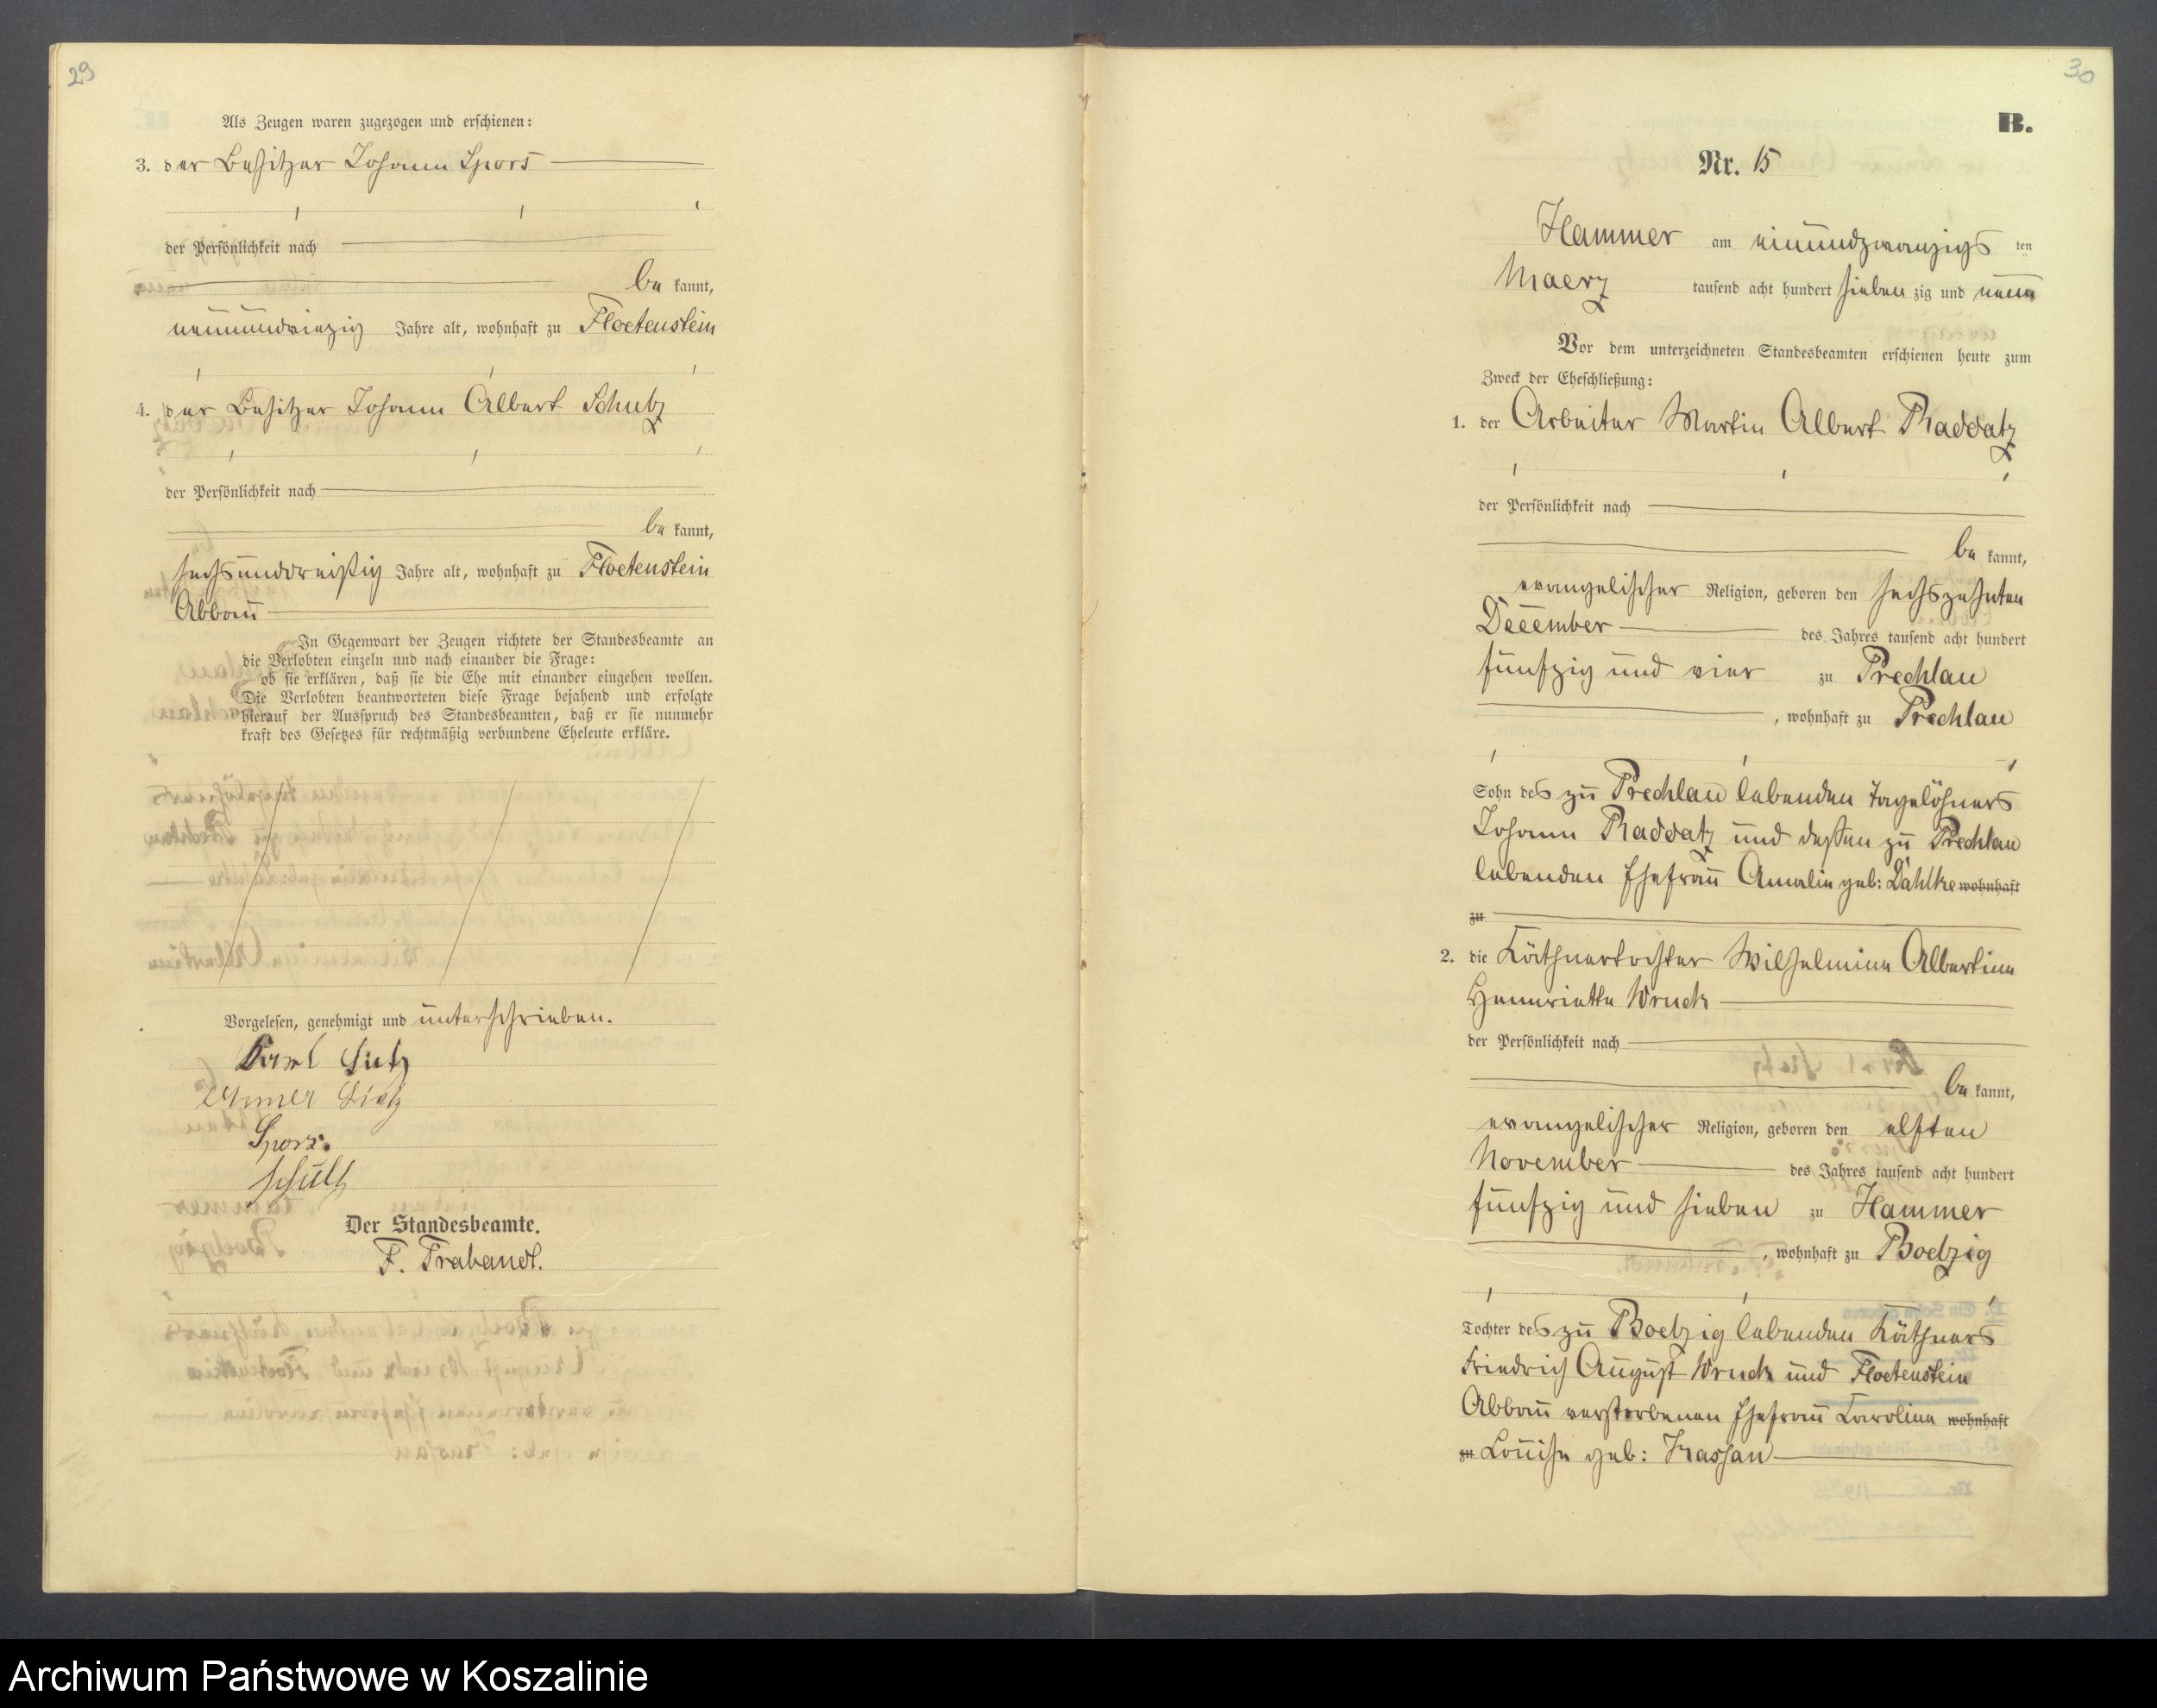 29
Als Zeugen waren zugezogen und erschienen:
3. der Besitzer Johann Spors
der Persönlichkeit nach
be kannt,
neunundvierzig Jahre alt, wohnhaft zu Floetenstein
4. der Besitzer Johann Albert Schulz
der Persönlichkeit nach
be kannt,
sechsunddreißig Jahre alt, wohnhaft zu Floetenstein
Abbau
In Gegenwart der Zeugen richtete der Standesbeamte an
die Verlobten einzeln und nach einander die Frage:
ob sie erklären, daß sie die Ehe mit einander eingehen wollen.
Die Verlobten beantworteten diese Frage bejahend und erfolgte
hierauf der Ausspruch des Standesbeamten, daß er sie nunmehr
kraft des Gesetzes für rechtmäßig verbundene Eheleute erkläre.
Vorgelesen, genehmigt und unterschrieben.
Karl
Spors.
Schulz
Der Standesbeamte.
F. Trabandt.
30
B.
Nr. 15
Hammer am einundzwanzigs ten
Maerz tausend acht hundert sieben zig und neun
Vor dem unterzeichneten Standesbeamten erschienen heute zum
Zweck der Eheschließung:
1. der Arbeiter Martin Albert Raddatz
der Persönlichkeit nach
be kannt,
evangelischer Religion, geboren den sechszehnten
December des Jahres tausend acht hundert
fünfzig und vier zu Prechlau
, wohnhaft zu Prechlau
Sohn des zu Prechlau lebenden Tagelöhners
Johann Raddatz und dessen zu Prechlau
lebenden Ehefrau Amalie geb: Dahlke wohnhaft
zu
2. die Käthnertochter Wilhelmine Albertine
Hennriette Wruck
der Persönlichkeit nach
be kannt,
evangelischer Religion, geboren den elften
November des Jahres tausend acht hundert
fünfzig und sieben zu Hammer
, wohnhaft zu Boelzig
Tochter des zu Boelzig lebenden Käthners
Friedrich August Wruck und Floetenstein
Abbau verstorbenen Ehefrau Caroline wohnhaft
zu Louise geb:
Archiwum Państwowe w Koszalinie